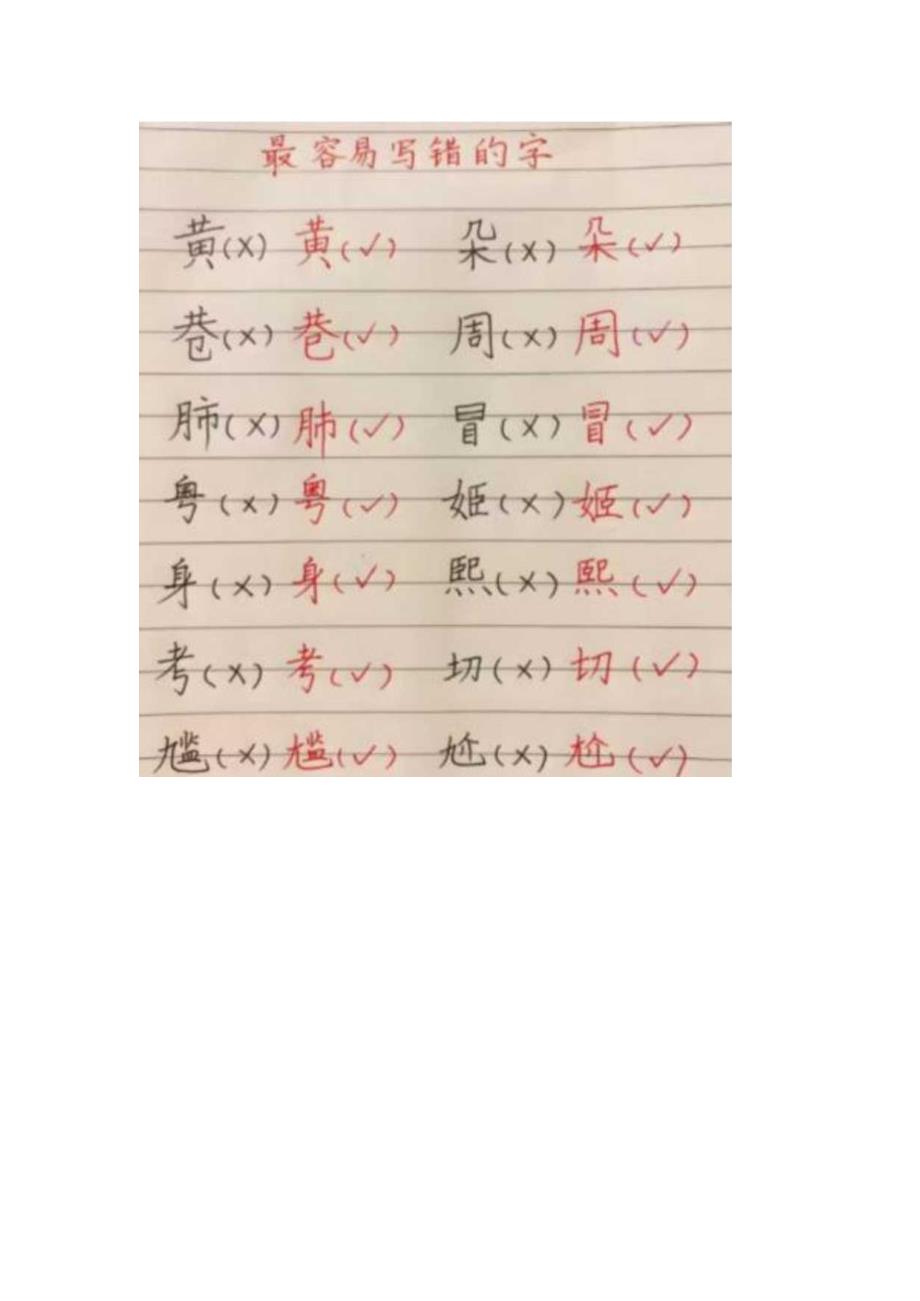 最容易写错的字
黄(×) 黄(✓) 朵(×) 朵(✓)
巷(×) 巷(✓) 周(×) 周(✓)
肺(×) 肺(✓) 冒(×) 冒(✓)
粤(×) 粤(✓) 姬(×) 姬(✓)
身(×) 身(✓) 熙(×) 熙(✓)
考(×) 考(✓) 切(×) 切(✓)
尴(×) 尴(✓) 尬(×) 尬(✓)